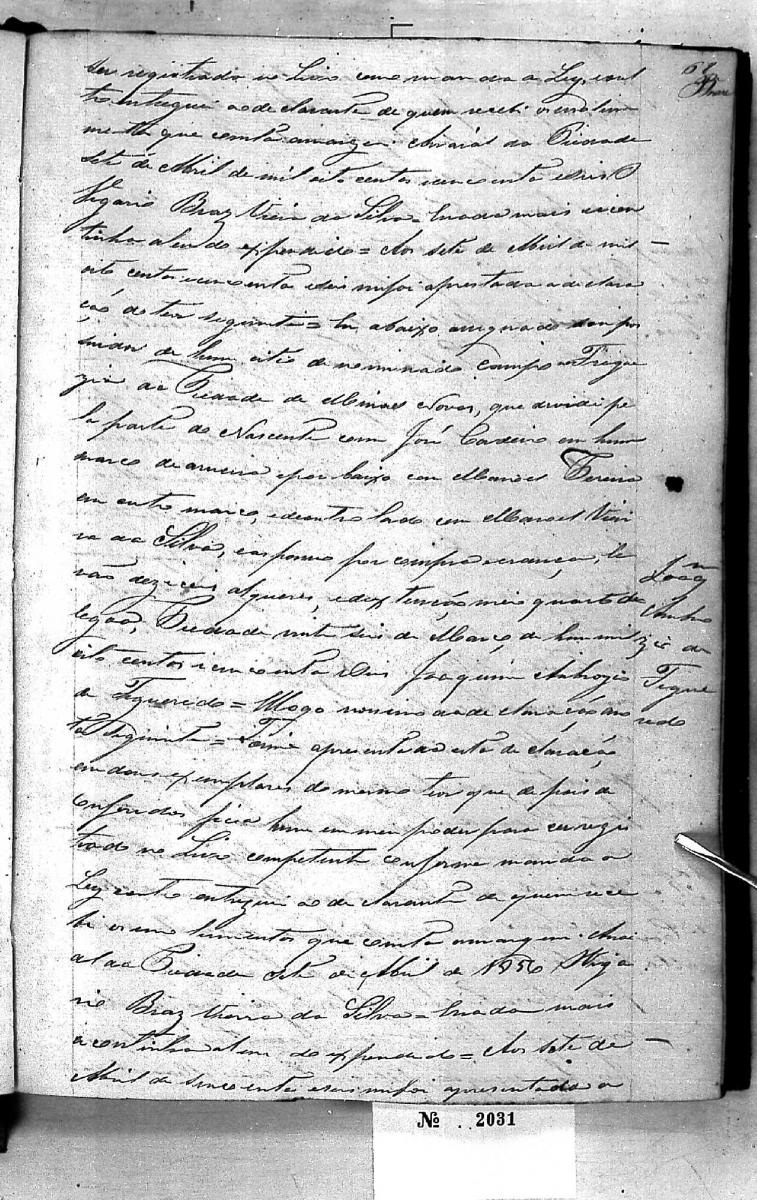 ser registrado no Livro como manda a Ley, eoul
tro entreguei ao declarante de quem recebi os emolu
mentos que consta amargem. Arraial da Piedade
sete de Abril de mil oito centos cincoenta e seis O
Vigario Braz Vieira da Silva = Enada mais se con
tinha alem do expendido = Aos sete de Abril de mil
oito centos cincoenta e seis mefoi aprestada a declara
ção do teor seguinte = Eu abaixo assignado sou pos
suidor de hum citio denominado Campo na Fregue
zia da Piedade de Minas Novas, que devide pe
la parte do Nascente com José Cordeiro em hum
marco de aroeira epor baixo com Manoel Pereira
em outro marco, e de outro lado com Manoel Viei
ra da Silva, eos possuo por compra e erança, le
vão deziceis alqueres, e de extenção meio quarto de
legoa, Piedade vinte seis de Março de hum mil
oito centos cincoenta e seis Joaquim Ambrozio
de Figueredo = Illogo no verso da declaração a no
ta seguinte = Foime apresentado esta declaração
em dous exemplares do mesmo teor que depois de
conferidos fica hum em meu poder para ser regis
trado no Livro competente conforme manda a
Ley eoutro entreguei ao declarante de quem rece
bi os emolumentos que consta amargem. Arrai
al da Piedade sete de Abril de 1856 O Viga
rio Braz Vieira da Silva = Enada mais
se continha alem do expendido = Aos sete de
Abril de cincoenta e seis mefoi apresentada a
Joaqm
Ambro
zio de
Figue
redo
№ 2031